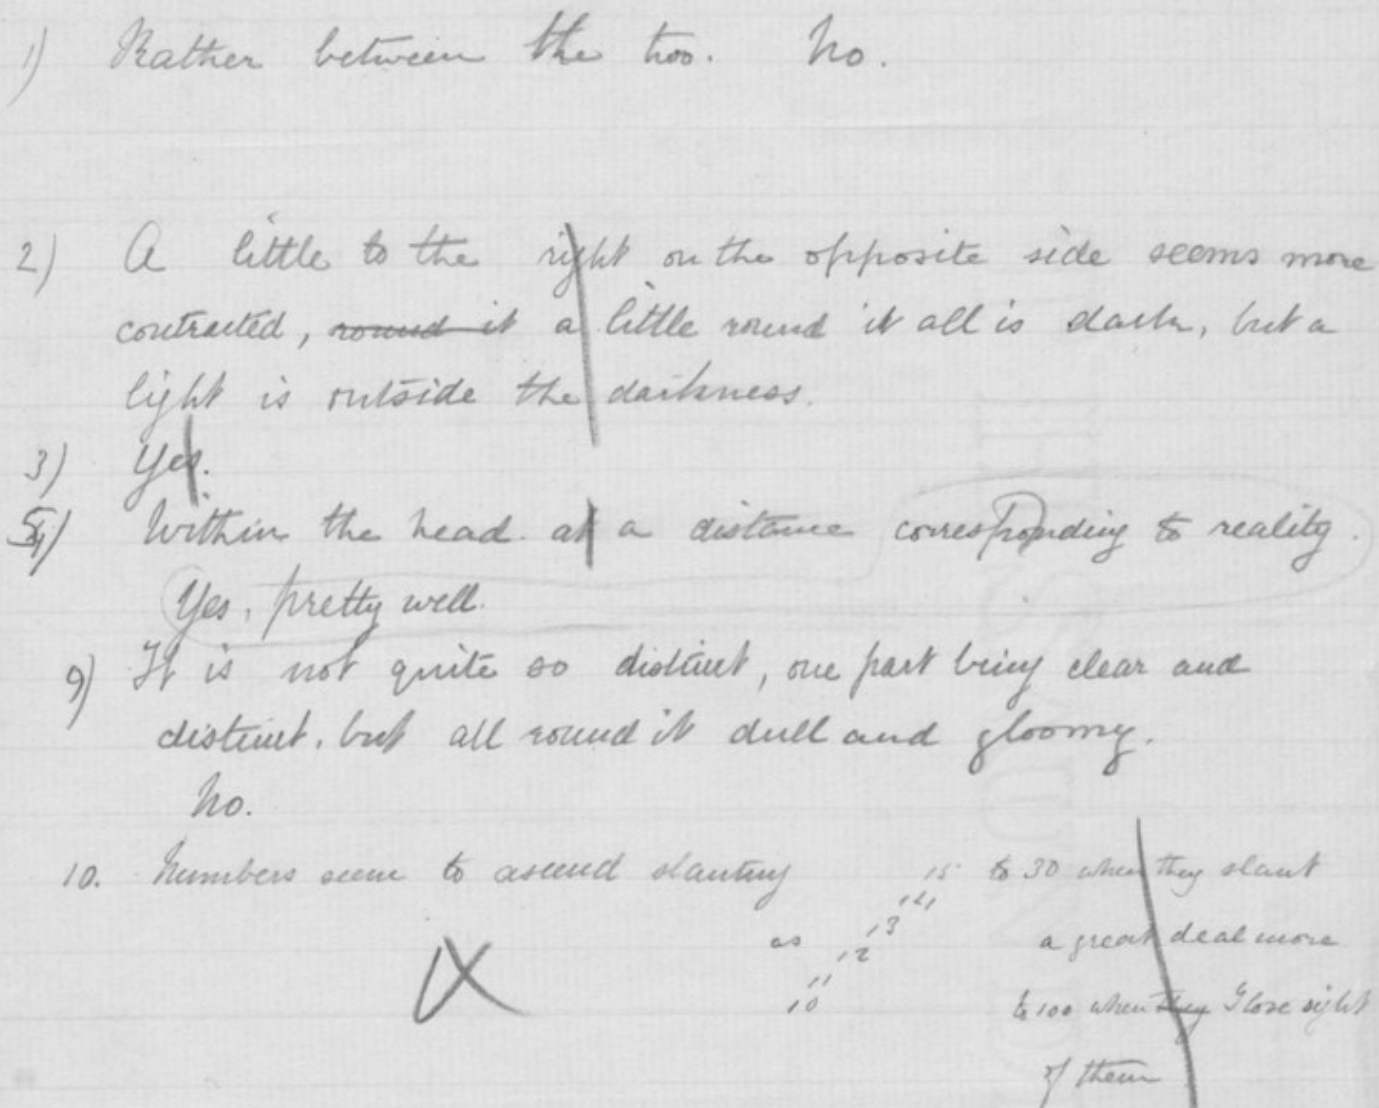 1) Rather between the two. No.
2) A little to the right on the opposite side seems more
contracted, round it a little round it all is dark, but a
light is outside the darkness.
3) Yes.
5) Within the head. at a distance corresponding to reality.
Yes, pretty well.
9) It is not quite so distinct, one part being clear and
distinct, but all round it dull and gloomy.
No.
10. Numbers seem to ascend slanting 15 to 30 when they slant
14
as 13 a great deal more
12
11
10 to 100 when they I lose sight
of them